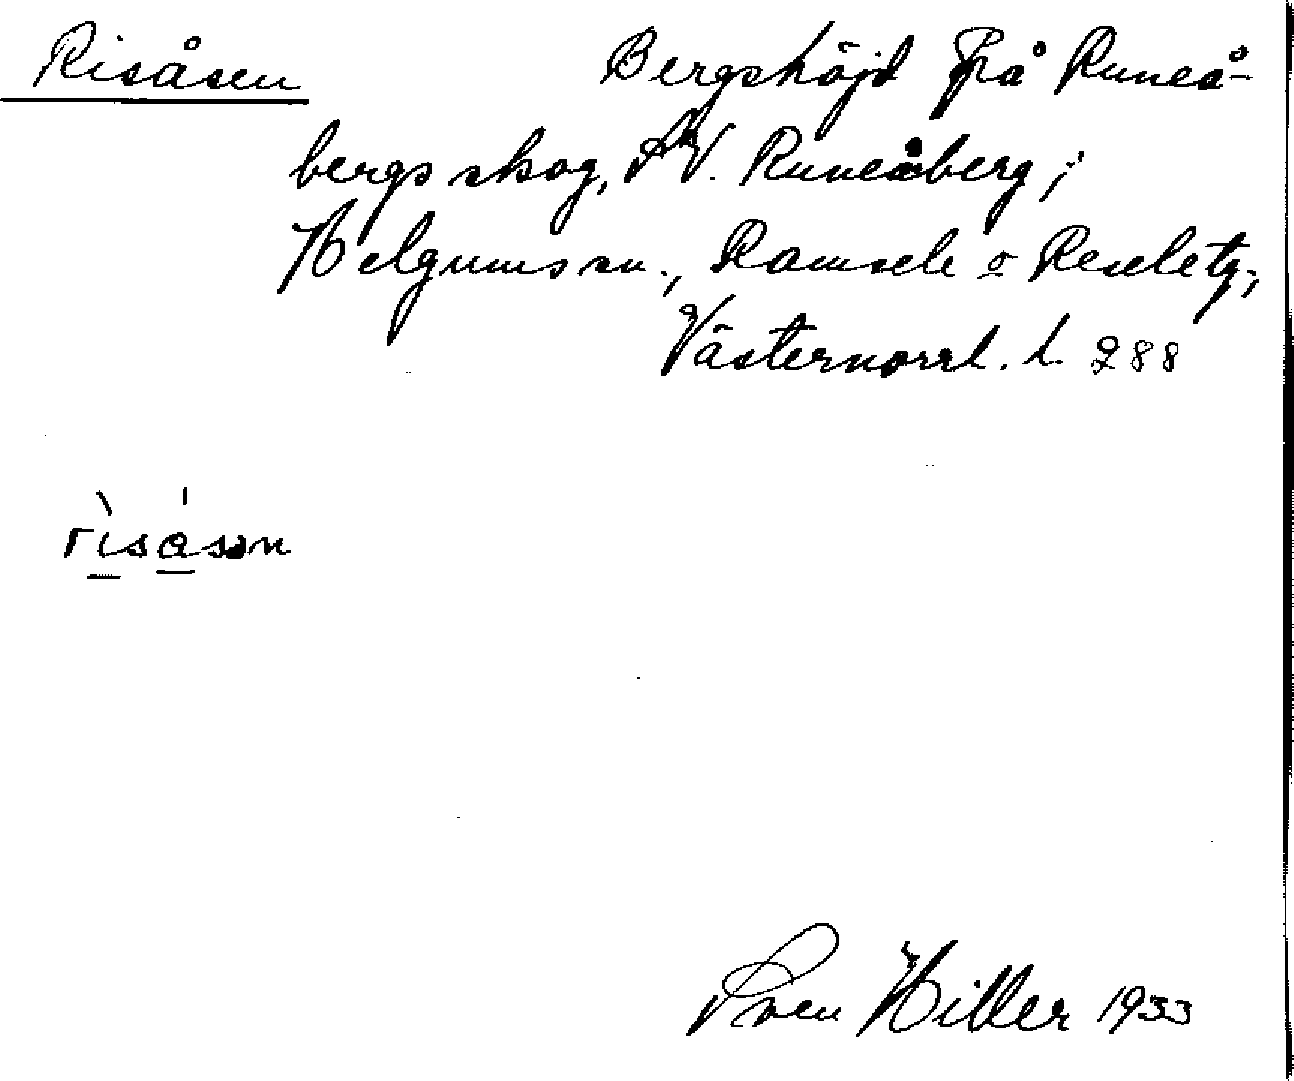 Risåsen Bergshöjd på Runeå-
bergs skog, SV. Runeåberg;
Helgums sn., Ramsele o Reseletg;
Västernorrl. l. 288
risåsən
Sven Hiller 1933